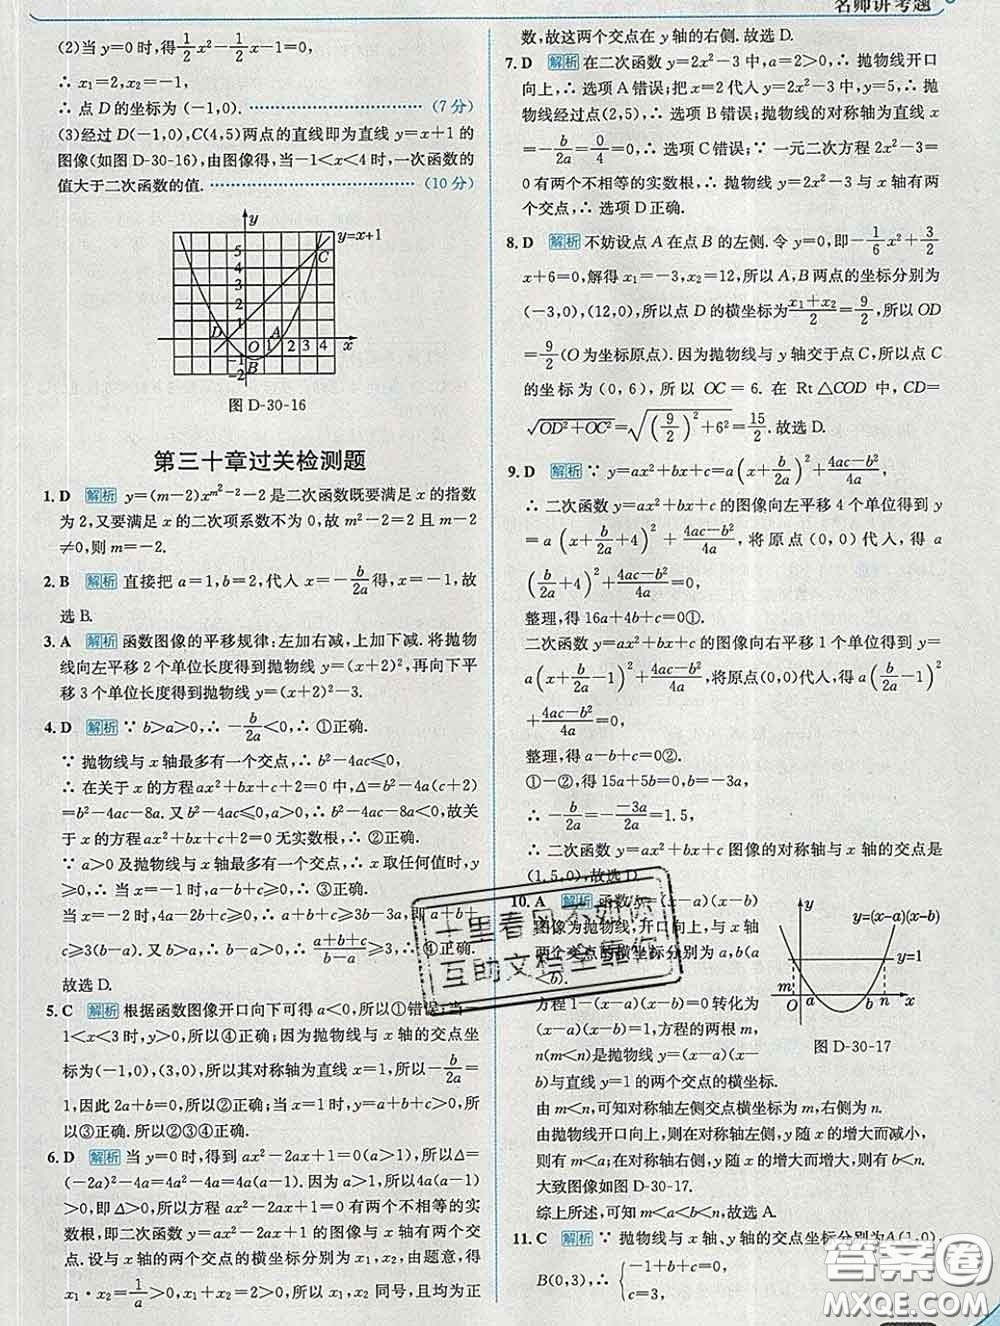 名师讲考题
(2)当 y=0 时,得 1/2 x²-1/2 x-1=0,
∴ x₁=2,x₂=-1,
∴ 点 D 的坐标为 (-1,0). (7 分)
(3)经过 D(-1,0),C(4,5)两点的直线即为直线 y=x+1 的
图像(如图 D-30-16),由图像得,当-1<x<4 时,一次函数的
值大于二次函数的值. (10 分)
y
y=x+1
5
C
4
3
2
1
D
O
1
A
2 3 4
x
-1
B
-2
图 D-30-16
第三十章过关检测题
1. D 解析 y=(m-2)x^(m²-2)-2 是二次函数既要满足 x 的指数
为 2,又要满足 x 的二次项系数不为 0,故 m²-2=2 且 m-2
≠0,则 m=-2.
2. B 解析 直接把 a=1,b=2,代人 x=-b/2a 得,x=-1,故
选 B.
3. A 解析 函数图像的平移规律:左加右减,上加下减. 将抛物
线向左平移 2 个单位长度得到抛物线 y=(x+2)²,再向下平
移 3 个单位长度得到抛物线 y=(x+2)²-3.
4. D 解析 ∵ b>a>0,∴ -b/2a<0,∴ ①正确.
∵ 抛物线与 x 轴最多有一个交点,∴ b²-4ac≤0,
∴ 在关于 x 的方程 ax²+bx+c+2=0 中,Δ=b²-4a(c+2)
=b²-4ac-8a. 又 b²-4ac≤0,a>0,∴ b²-4ac-8a<0,故关
于 x 的方程 ax²+bx+c+2=0 无实数根,∴ ②正确.
∵ a>0 及抛物线与 x 轴最多有一个交点,∴ x 取任何值时,y
≥0,∴ 当 x=-1 时,a-b+c≥0,∴ ③正确.
当 x=-2 时,4a-2b+c≥0,∴ a+b+c≥3b-3a,即 a+b+
c≥3(b-a). 又 b>a,∴ b-a>0,∴ (a+b+c)/(b-a)≥3,∴ ④正确.
故选 D.
5. C 解析 根据函数图像开口向下可得 a<0,所以①错误;当
1<x<3 时,y>0,所以④正确;因为抛物线与 x 轴的交点坐
标为(-1,0),(3,0),所以其对称轴为直线 x=1,所以-b/2a=
1,因此 2a+b=0,所以②正确;当 x=1 时,y=a+b+c>0,
所以③正确. 所以②③④正确.
6. D 解析 当 y=0 时,得到 ax²-2ax+1=0(a>1),所以 Δ=
(-2a)²-4a=4a²-4a=4a(a-1). 因为 a>1,所以 4a(a-1)
>0,即 Δ>0,所以方程 ax²-2ax+1=0 有两个不相等的实数
根,即二次函数 y=ax²-2ax+1 的图像与 x 轴有两个交
点. 设与 x 轴的两个交点的横坐标分别为 x₁,x₂,由题意,得
x₁·x₂=1/a>0,x₁+x₂=2>0,所以 x₁,x₂ 同号,且均为正
数,故这两个交点在 y 轴的右侧. 故选 D.
7. D 解析 在二次函数 y=2x²-3 中,a=2>0,∴ 抛物线开口
向上,∴ 选项 A 错误;把 x=2 代人 y=2x²-3 中,y=5,∴ 抛
物线经过点(2,5),∴ 选项 B 错误;抛物线的对称轴为直线
x=-b/2a=0/4=0,∴ 选项 C 错误;∵ 一元二次方程 2x²-3=
0 有两个不相等的实数根,∴ 抛物线 y=2x²-3 与 x 轴有两
个交点,∴ 选项 D 正确.
8. D 解析 不妨设点 A 在点 B 的左侧. 令 y=0,即-1/6 x²+3/2
x+6=0,解得 x₁=-3,x₂=12,所以 A,B 两点的坐标分别为
(-3,0),(12,0),所以点 D 的横坐标为(x₁+x₂)/2=9/2,所以 OD
=9/2(O 为坐标原点). 因为抛物线与 y 轴交于点 C,所以点 C
的坐标为(0,6),所以 OC=6. 在 Rt△COD 中,CD=
√(OD²+OC²)=√((9/2)²+6²)=15/2. 故选 D.
9. D 解析 ∵ y=ax²+bx+c=a(x+b/2a)²+(4ac-b²)/4a,
∴ 二次函数 y=ax²+bx+c 的图像向左平移 4 个单位得到 y=
a(x+b/2a+4)²+(4ac-b²)/4a,将原点(0,0)代人,得
a(b/2a+4)²+(4ac-b²)/4a=0,
整理,得 16a+4b+c=0①.
二次函数 y=ax²+bx+c 的图像向右平移 1 个单位得到 y=
a(x+b/2a-1)²+(4ac-b²)/4a,将原点(0,0)代人,得 a(b/2a-1)²
+(4ac-b²)/4a=0,
整理,得 a-b+c=0②.
①-②,得 15a+5b=0,b=-3a,
∴ -b/2a=-(-3a)/2a=1.5,
∴ 二次函数 y=ax²+bx+c 图像的对称轴与 x 轴的交点是
(1.5,0),故选 D.
10. A 解析 函数 y=(x-a)(x-b)
图像为抛物线,开口向上,与 x 轴
两个交点的横坐标分别为 a,b(a
<b).
方程 1-(x-a)(x-b)=0 转化为
(x-a)(x-b)=1,方程的两根 m,
n(m<n)是抛物线 y=(x-a)(x-b)
与直线 y=1 的两个交点的横坐标.
由 m<n,可知对称轴左侧交点横坐标为 m,右侧为 n.
由抛物线开口向上,则在对称轴左侧,y 随 x 的增大而减少,则
有 m<a;在对称轴右侧,y 随 x 的增大而增大,则有 b<n.
大致图像如图 D-30-17.
综上所述,可知 m<a<b<n,故选 A.
y
y=(x-a)(x-b)
y=1
m
O
a
b
n
x
图 D-30-17
11. C 解析 ∵ 抛物线与 x 轴、y 轴的交点坐标分别为 A(1,0),
B(0,3),∴ {-1+b+c=0,
c=3,
十里春风不如你
互助文档全靠你
答案圈
MXQE.COM